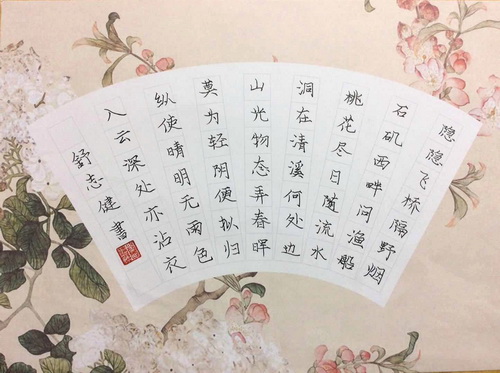 隐隐飞桥隔野烟
石矶西畔问渔船
桃花尽日随流水
洞在清溪何处边
山光物态弄春晖
莫为轻阴便拟归
纵使晴明无雨色
入云深处亦沾衣
舒志健書